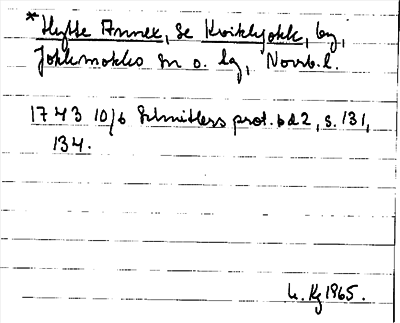 *Hytte Annex, Se Kvikkjokk, by,
Jokkmokks sn o. lg, Norrb. l.
1743 10/6 Schmitlers prot. bd 2, s. 131,
134.
Kg 1965.